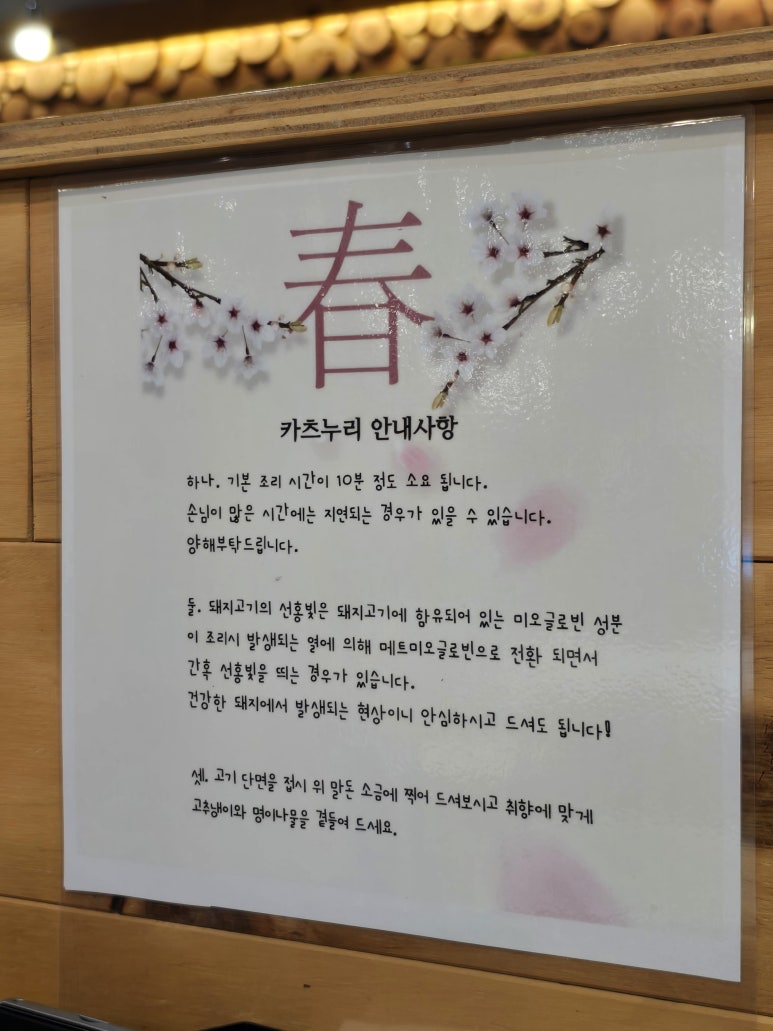 春
카츠누리 안내사항
하나. 기본 조리 시간이 10분 정도 소요 됩니다.
손님이 많은 시간에는 지연되는 경우가 있을 수 있습니다.
양해부탁드립니다.
둘. 돼지고기의 선홍빛은 돼지고기에 함유되어 있는 미오글로빈 성분
이 조리시 발생되는 열에 의해 메트미오글로빈으로 전환 되면서
간혹 선홍빛을 띄는 경우가 있습니다.
건강한 돼지에서 발생되는 현상이니 안심하시고 드셔도 됩니다!
셋. 고기 단면을 접시 위 말돈 소금에 찍어 드셔보시고 취향에 맞게
고추냉이와 명이나물을 곁들여 드세요.